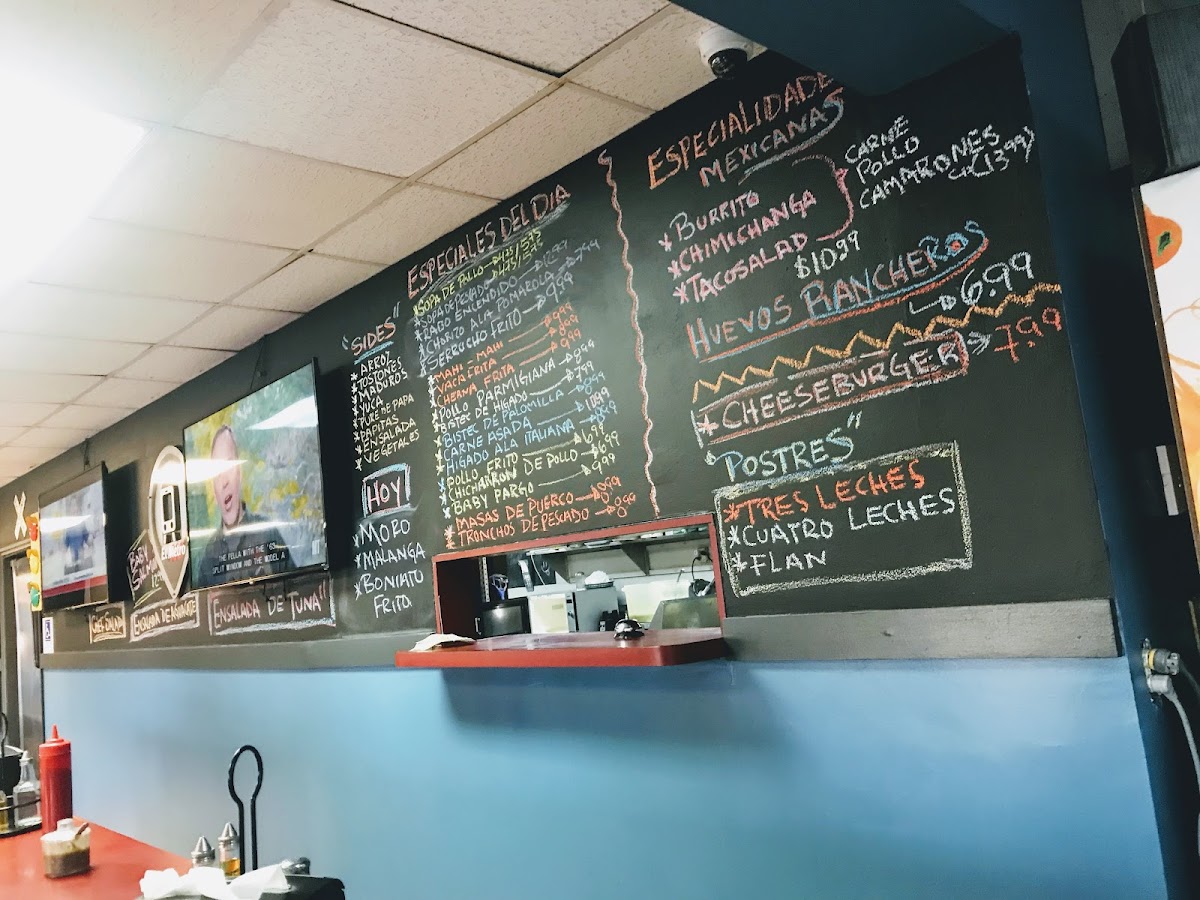 "SIDES"
* ARROZ
* TOSTONES
* MADUROS
* YUCA
* PURE DE PAPA
* PAPITAS
* ENSALADA
* VEGETALES
HOY
* MORO
* MALANGA
* BONIATO
FRITO
ESPECIALES DEL DIA
* SOPA DE POLLO
* SOPA DE PESCADO
* RABO ENCENDIDO → 12.99
* CHORIZO A LA POMAROLA → 7.99
* SERRUCHO FRITO → 9.99
* MAHI MAHI 9.99
* VACA FRITA 8.99
* CHERNA FRITA 9.99
* POLLO PARMIGIANA → 8.99
* BISTEC DE HIGADO → 7.99
* BISTEC DE PALOMILLA → 8.99
* CARNE ASADA → 10.99
* HIGADO A LA ITALIANA → 8.99
* POLLO FRITO → 6.99
* CHICHARRON DE POLLO → 6.99
* BABY PARGO → 9.99
* MASAS DE PUERCO → 8.99
* TRONCHOS DE PESCADO → 8.99
ESPECIALIDADES
MEXICANAS
* BURRITO
* CHIMICHANGA
* TACO SALAD
CARNE
POLLO
CAMARONES
(13.99)
$10.99
HUEVOS RANCHEROS
→ 6.99
* CHEESEBURGER → 7.99
"POSTRES"
* TRES LECHES
* CUATRO LECHES
* FLAN
El Metro
BABY
ENSALADA DE AGUACATE
ENSALADA DE TUNA"
THE PELLA WITH THE '63
SPLIT WINDOW AND THE MODEL A